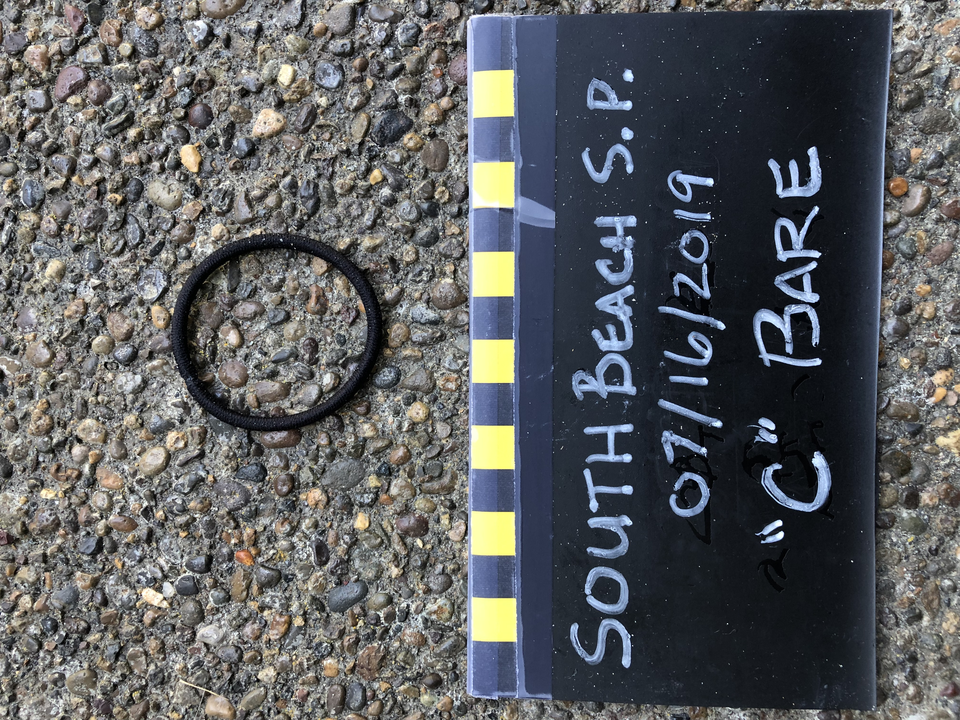 SOUTH BEACH S.P.
07/16/2019
"C" BARE